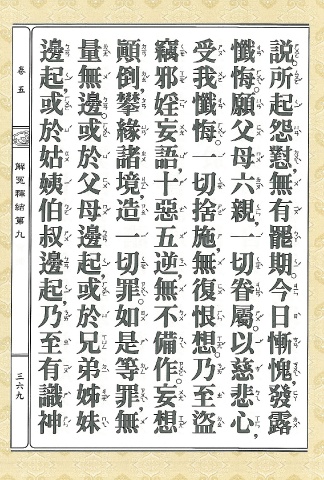 說所起怨懟無有罷期。今日慚愧發露
懺悔。願父母六親一切眷屬以慈悲心
受我懺悔。一切捨施無復恨想。乃至盜
竊邪婬妄語，十惡五逆，無不備作。妄想
顚倒，攀緣諸境，造一切罪。如是等罪無
量無邊。或於父母邊起，或於兄弟姊妹
邊起，或於姑姨伯叔邊起，乃至有識神
卷五
解冤釋結第九
三六九